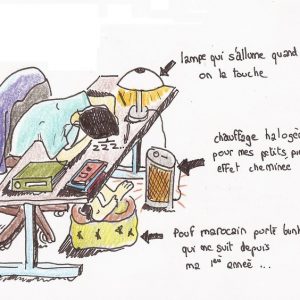 lampe qui s'allume quand
on la touche
zzz
chauffage halogè
pour mes petits
effet cheminée
Pouf marocain porte
qui me suit depuis
ma 1ère année ...